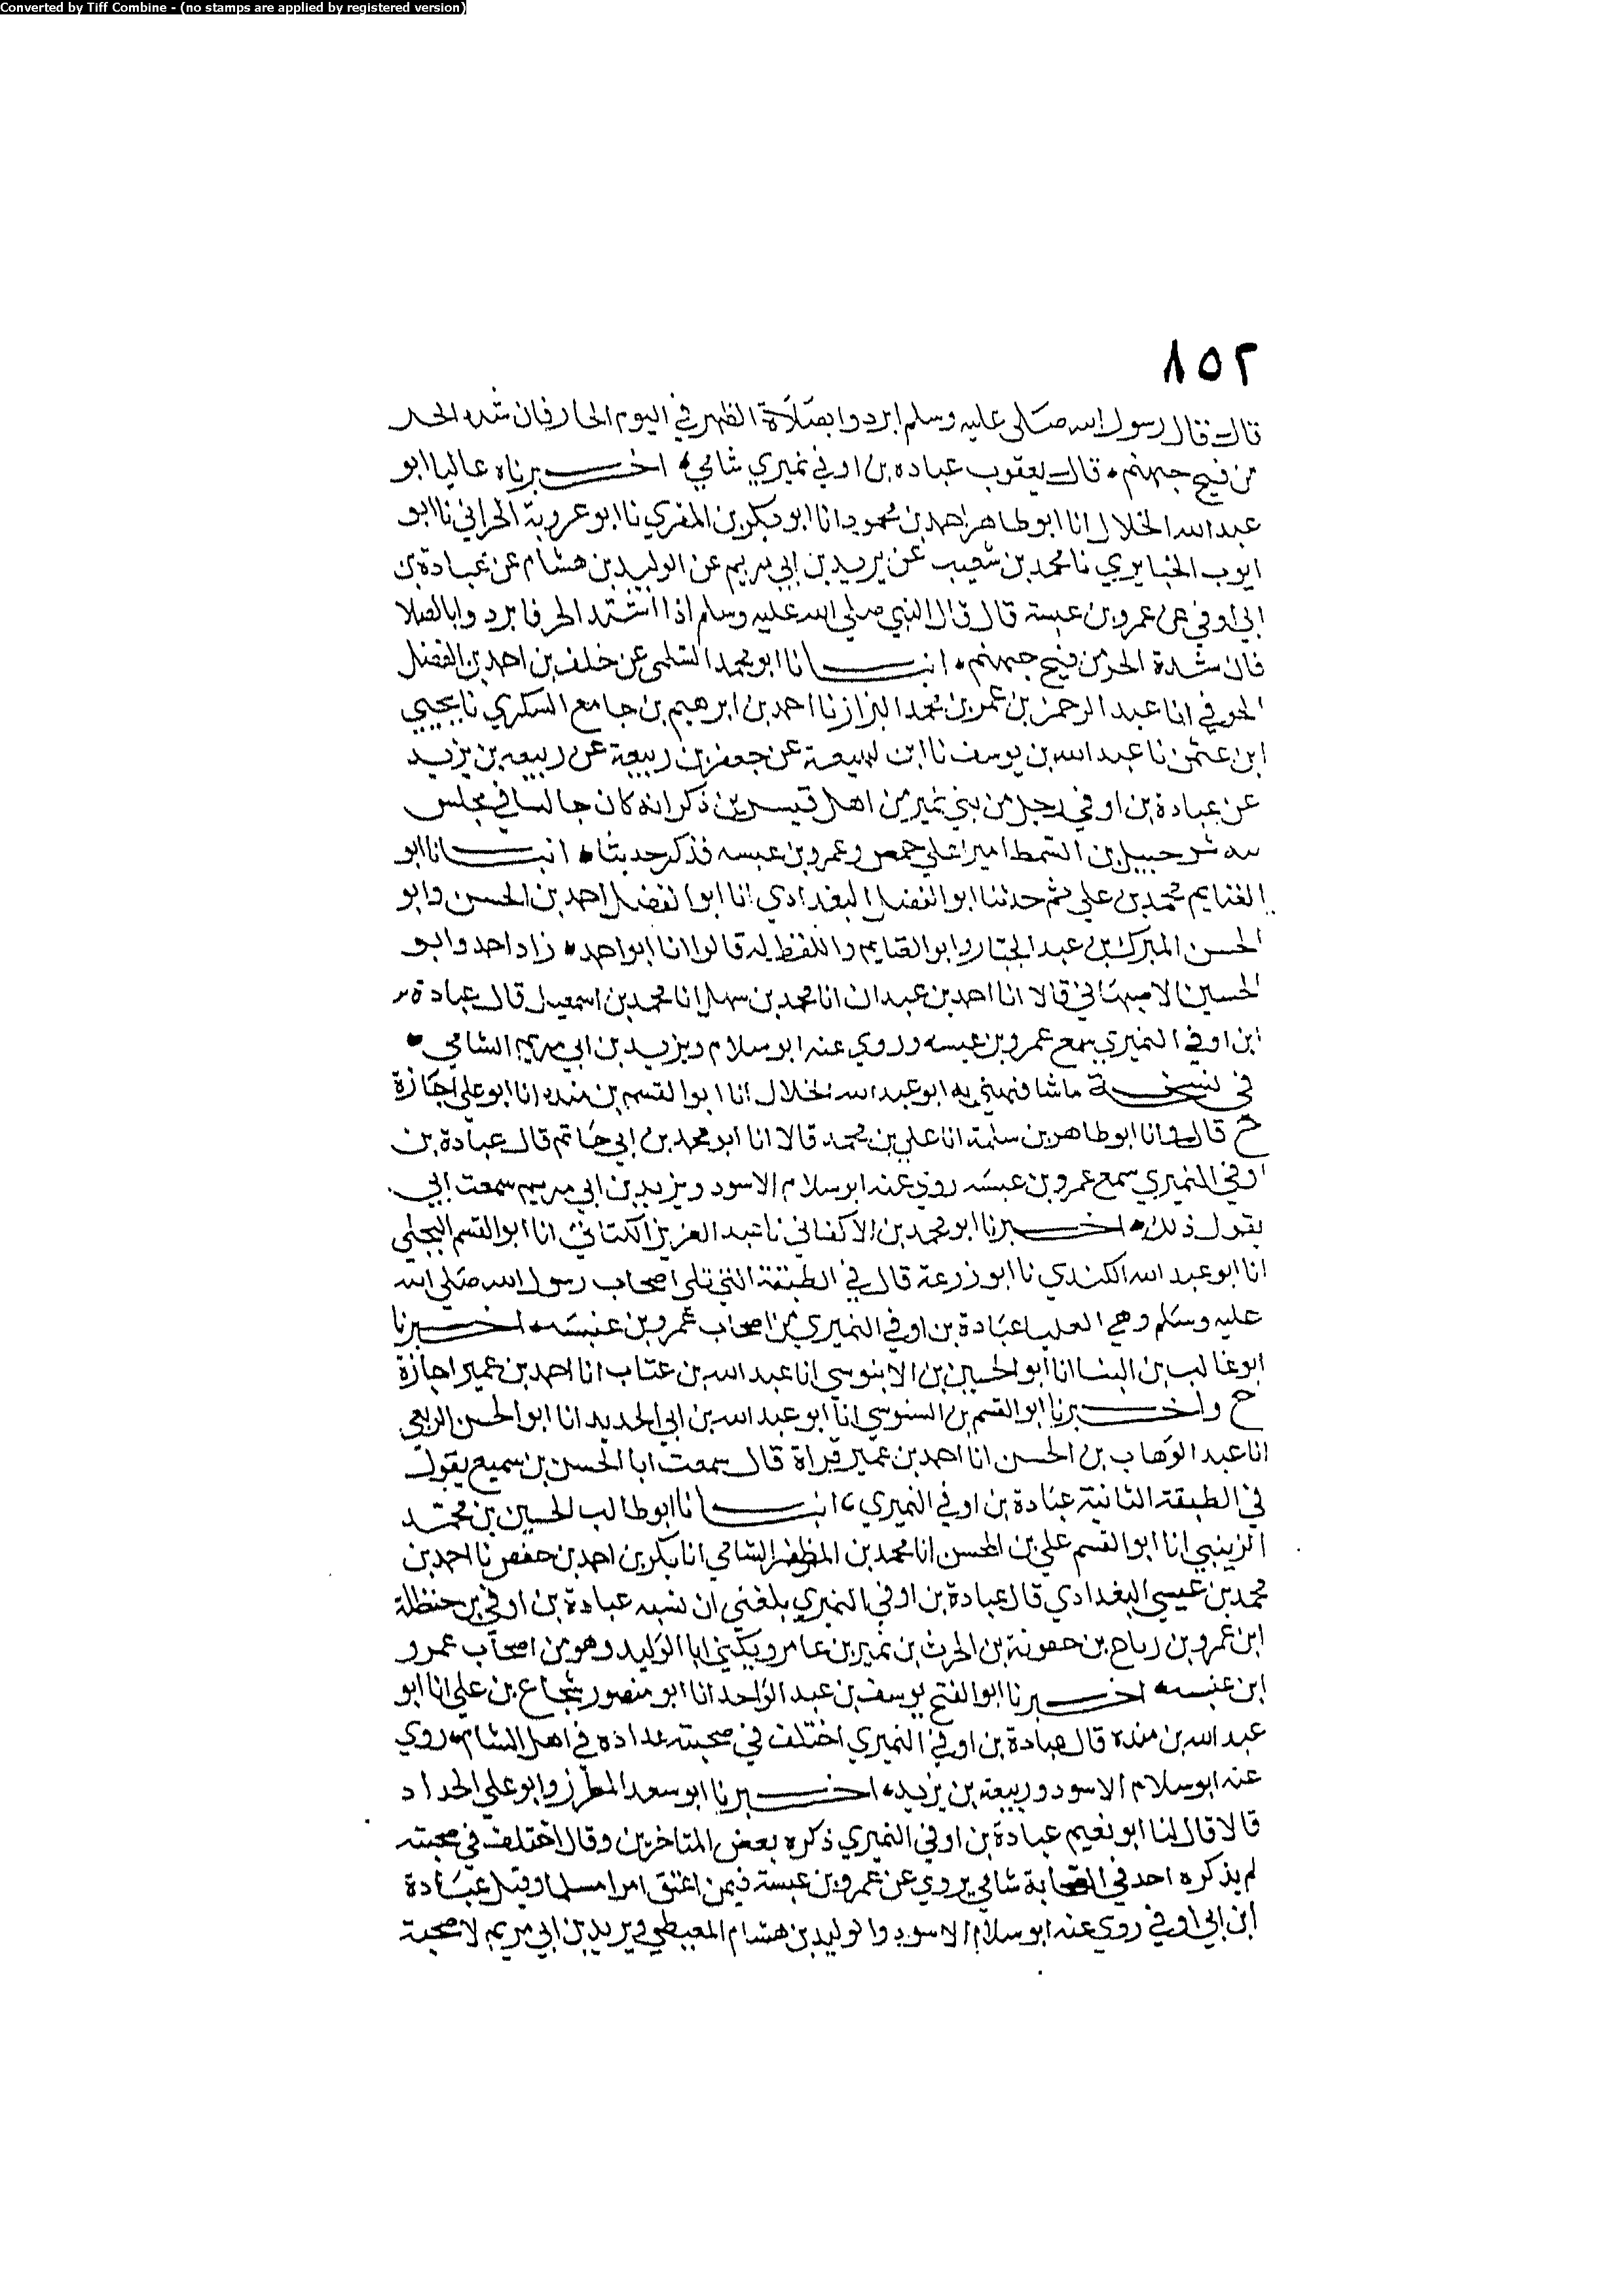 Converted by Tiff Combine - (no stamps are applied by registered version)
٨٥٢
قال قال رسول الله صلى عليه وسلم ابردوا بصلاة الظهر في اليوم الحار فان شده الحر
من فيح جهنم • قال يعقوب عباده بن اوفي نميري شامي • اخبرناه عاليا ابو
عبد الله الخلال انا ابو طاهر احمد بن محمود انا ابو بكر بن المقري نا ابو عروبة الحراني نا ابو
ايوب الخبايري نا محمد بن شعيب عن يزيد بن ابي مريم عن الوليد بن هشام عن عبادة بن
ابي اوفي عن عمرو بن عبسة قال قال النبي صلي الله عليه وسلم اذا اشتد الحر فابردوا بالصلا
فان شدة الحر من فيح جهنم • انبانا ابو محمد السلمي عن خلف بن احمد بن الفضل
الحوفي انا عبد الرحمن بن عمر بن محمد البزاز نا احمد بن ابرهيم بن جامع السكري نا يحيي
ابن عثمن نا عبد الله بن يوسف نا ابن لهيعة عن جعفر بن ربيعة عن ربيعه بن يزيد
عن عبادة بن اوفي رجل من بني نمير من اهل قنسرين ذكر انه كان جالسا في مجلس
شرحبيل بن السمط اميرا علي حمص وعمرو بن عبسه فذكر حديثا • انبانا ابو
الغنايم محمد بن علي ثم حدثنا ابو الفضل البغدادي انا ابو الفضل احمد بن الحسن وابو
الحسن المبرك بن عبد الجبار وابو الغنايم واللفظ له قالوا انا ابو احمد • زاد احمد وابو
الحسين الاصبهاني قالا انا احمد بن عبدان انا محمد بن سهل انا محمد بن اسمعيل قال عبادة
ابن اوفي النميري سمع عمرو بن عبسه وروي عنه ابو سلام ويزيد بن ابي مريم الشامي •
في نسخة ما شافهني به ابو عبد الله الخلال انا ابو القسم بن منده انا ابو علي اجازة
ح قال وانا ابو طاهر بن سلمة انا علي بن محمد قالا انا ابو محمد بن ابي حاتم قال عبادة بن
اوفي النميري سمع عمرو بن عبسه روي عنه ابو سلام الاسود ويزيد بن ابي مريم سمعت ابي
يقول ذلك • اخبرنا ابو محمد بن الاكفاني نا عبد العزيز الكتاني انا ابو القسم البجلي
انا ابو عبد الله الكندي نا ابو زرعة قال في الطبقة التي تلي اصحاب رسول الله صلى الله
عليه وسلم وهي العليا عبادة بن اوفي النميري من اصحاب عمرو بن عنبسه • اخبرنا
ابو غالب بن البنا انا ابو الحسين بن الابنوسي انا عبد الله بن عتاب انا احمد بن عمير اجازة
ح واخبرنا ابو القسم بن السنوسي انا ابو عبد الله بن ابي الحديد انا ابو الحسن الربعي
انا عبد الوهاب بن الحسن انا احمد بن عمير قراة قال سمعت ابا الحسن بن سميع يقول
في الطبقة الثانية عبادة بن اوفي النميري • انبانا ابو طالب الحسين بن محمد
الزينبي انا ابو القسم علي بن المحسن انا محمد بن المظفر الشامي انا بكر بن احمد بن حفص نا احمد بن
محمد بن عيسي البغدادي قال عبادة بن اوفي النميري بلغني ان نسبه عبادة بن اوفي بن حنظلة
ابن عمرو بن رباح بن جعونة بن الحرث بن نمير بن عامر ويكني ابا الوليد وهو من اصحاب عمرو
ابن عنبسه • اخبرنا ابو الفتح يوسف بن عبد الواحد انا ابو منصور شجاع بن علي انا ابو
عبد الله بن منده قال عبادة بن اوفي النميري اختلف في صحبته عداده في اهل الشام • روي
عنه ابو سلام الاسود وربيعة بن يزيد • اخبرنا ابو سعد المطرز وابو علي الحداد
قالا قال لنا ابو نعيم عبادة بن اوفي النميري ذكره بعض المتاخرين وقال اختلف في صحبته
لم يذكره احد في الصحابة شامي يروي عن عمرو بن عبسة فيمن اعتق امرا مسلما وقيل عبادة
ابن ابي اوفي روي عنه ابو سلام الاسود والوليد بن هشام المعيطي ويزيد بن ابي مريم لا صحبة